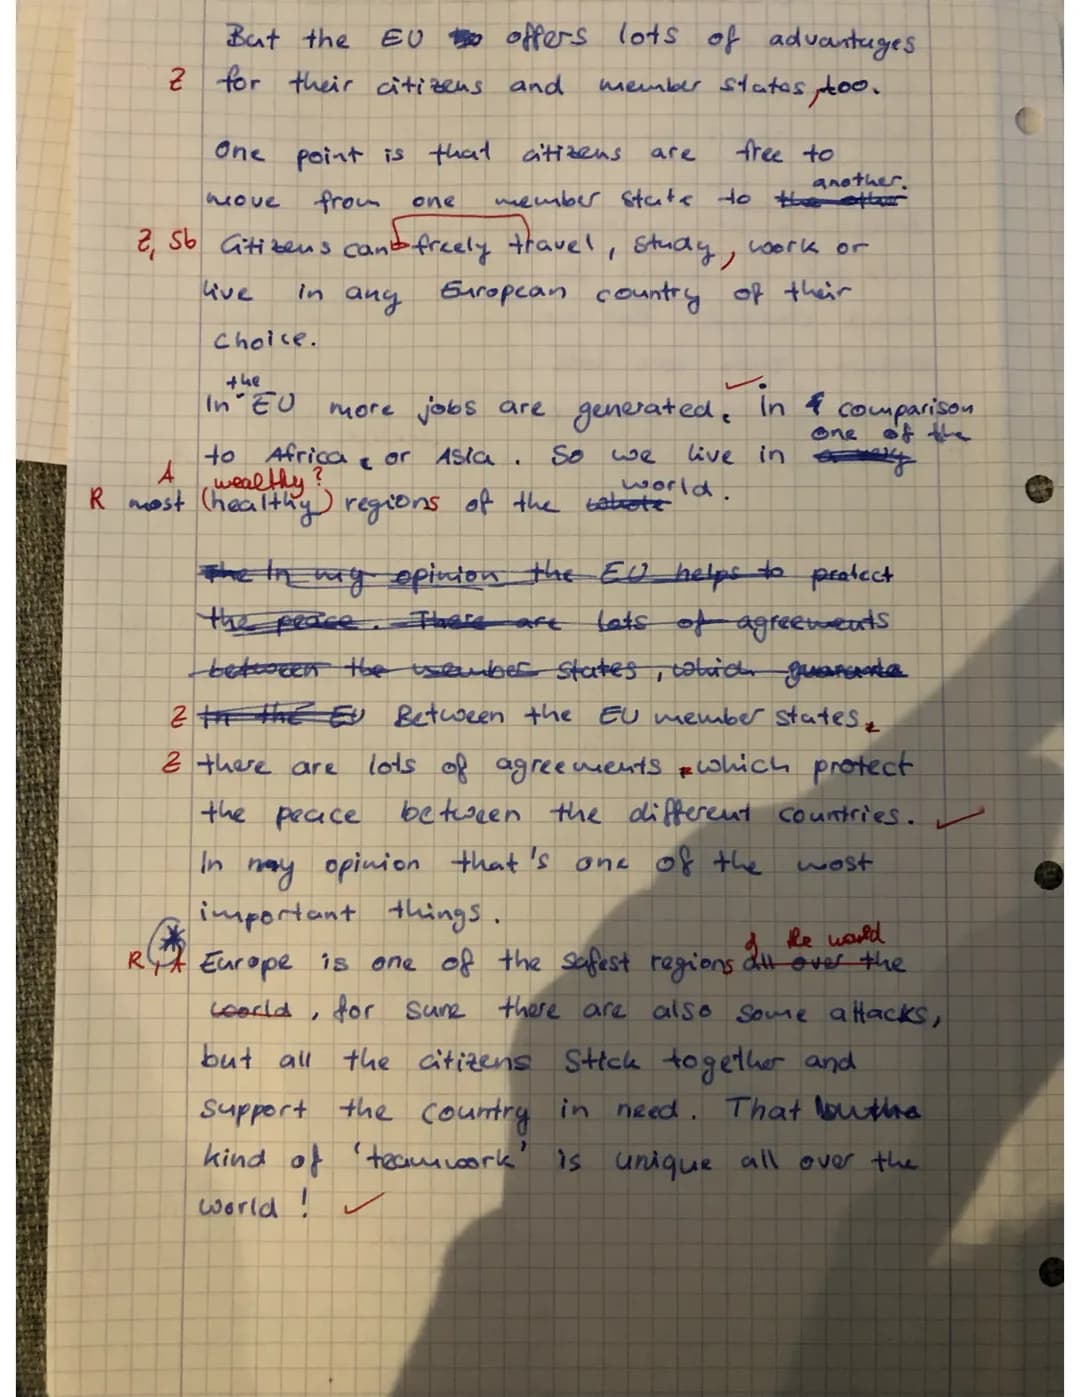 But the EU offers lots of advantages
Z for their citizens and member states, too.
One point is that citizens are free to
another.
move from one member state to the other
Z, Sb Citizens can freely travel, study, work or
live in any European country of their
choice.
the
In EU more jobs are generated, in comparison
one of the
to Africa or Asia. So we live in a very
A wealthy? world.
R most (healthy) regions of the whole
The In my opinion the EU helps to protect
the peace. There are lots of agreements
between the member states, which guarante
Z In the EU Between the EU member states,
Z there are lots of agreements, which protect
the peace between the different countries.
In my opinion that's one of the most
important things.
of the world
R, A Europe is one of the safest regions all over the
world, for sure there are also some attacks,
but all the citizens stick together and
support the country in need. That
kind of 'teamwork' is unique all over the
world!